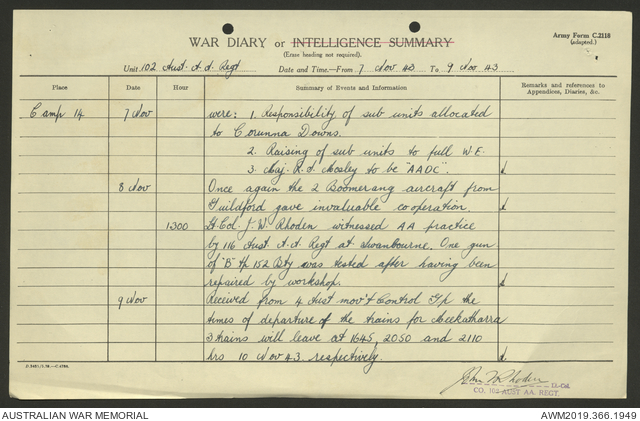 WAR DIARY or INTELLIGENCE SUMMARY
(Erase heading not required).
Army Form C.2118
(adapted.)
Unit 102 Aust. A.A. Regt Date and Time.—From 7 Nov 43 To 9 Nov 43
Place Date Hour Summary of Events and Information Remarks and references to Appendices, Diaries, &c.
Camp 14 7 Nov were: 1. Responsibility of sub units allocated
to Corunna Downs.
2. Raising of sub units to full W.E.
3. Maj. R.A. Mosley to be "AADC".
8 Nov Once again the 2 Boomerang aircraft from
Guildford gave invaluable co-operation.
1300 Lt. Col. J.W. Rhoden witnessed AA practice
by 116 Aust A.A. Regt at Swanbourne. One gun
of "B" Tp 152 Bty was tested after having been
repaired by workshop.
9 Nov Received from 4 Aust mov't Control Gp the
times of departure of the trains for Meekatharra
3 trains will leave at 1645, 2050 and 2110
hrs 10 Nov 43. respectively.
John W Rhoden Lt-Col
CO. 102 AUST AA. REGT.
AUSTRALIAN WAR MEMORIAL
AWM2019.366.1949